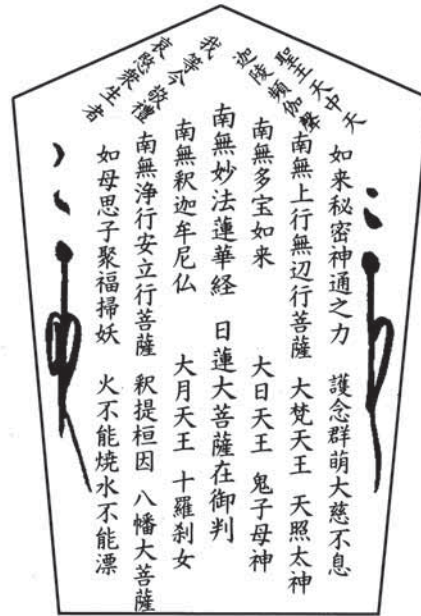 聖主天中天
迦陵頻伽聲
我等今敬禮
哀愍衆生者
如来秘密神通之力 護念群萌大慈不息
南無上行無辺行菩薩 大梵天王 天照太神
南無多宝如来 大日天王 鬼子母神
南無妙法蓮華経 日蓮大菩薩在御判
南無釈迦牟尼仏 大月天王 十羅刹女
南無浄行安立行菩薩 釈提桓因 八幡大菩薩
如母思子聚福掃妖 火不能焼水不能漂